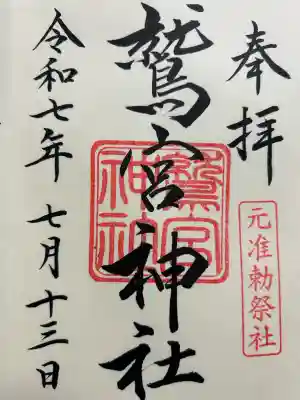 奉拝
元准勅祭社
鷲宮神社
鷲宮
神社
令和七年 七月 十三日